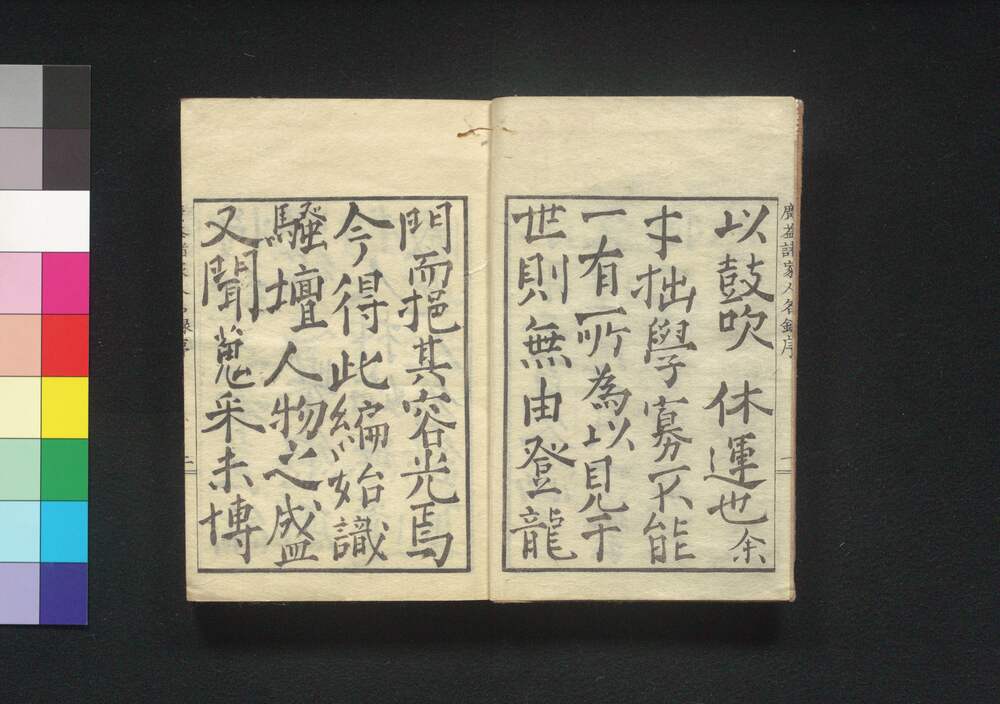 廣益諸家人名錄序
以鼓吹 休運也余
才拙學寡不能
一有所為以見于
世則無由登龍
門而挹其容光焉
今得此編始識
騷壇人物之盛
又聞蒐采未博